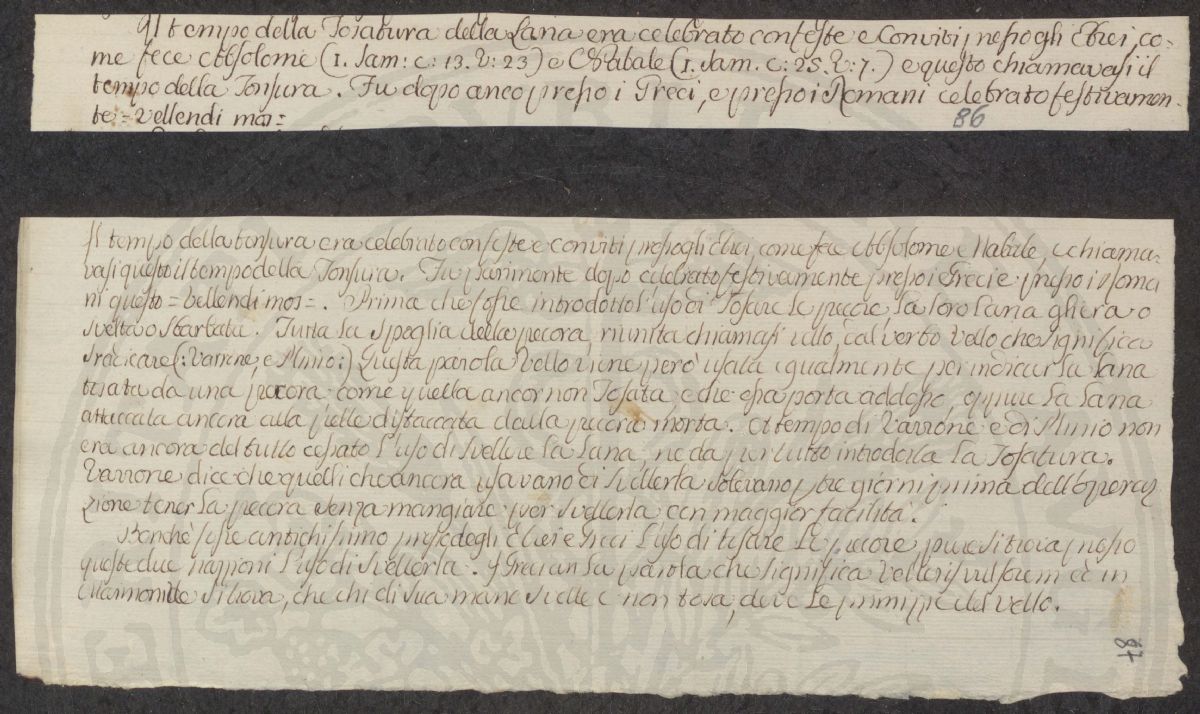 Il tempo della Tosatura della Lana era celebrato con feste e Conviti presso gli Ebrei, co=
me fece Absolome (1. Sam: c: 13. v: 23) e Nabale (1. Sam. c: 25. v: 7.) e questo chiamavasi il
tempo della Tonsura. Fu dopo anco presso i Greci, e presso i Romani celebrato festivamen-
te = Vellendi mos =
86
Il tempo della tonsura era celebrato con feste e conviti presso gli Ebrei, come fece Absolome e Nabale, e chiama-
vasi questo il tempo della Tonsura. Fu parimente dopo celebrato festivamente presso i Greci e presso i Roma
ni questo = vellendi mos =. Prima che fosse introdotto l'uso di Tosare le pecore la loro lana gli era o
svelta o sbarbata. Tutta la spoglia della pecora, riunita chiamasi vello, dal verbo Vello che significa
sradicare (: Varrone, e Plinio :) Questa parola Vello viene però usata egualmente per indicar la lana
tosata da una pecora come quella ancor non Tosata e che essa porta addosso, oppure la Lana
attaccata ancora alla pelle distaccata dalla pecora morta. Al tempo di Varrone e di Plinio non
era ancora del tutto cessato l'uso di svellere la lana, ne da per tutto introdotta la Tosatura.
Varrone dice che quelli che ancora usavano di svellerla solevano tre giorni prima dell'opera
zione tener la pecora senza mangiare per svellerla con maggior facilità.
Benchè fosse antichissimo presso degli Ebrei e Greci l'uso di tosare le pecore pure si trova presso
queste due nazzioni l'uso di svellerla. I Greci an la parola che significa velleris vulsorem ed in
Maimonide si trova, che chi di sua mano svelle e non tosa, deve le primizie del vello.
87